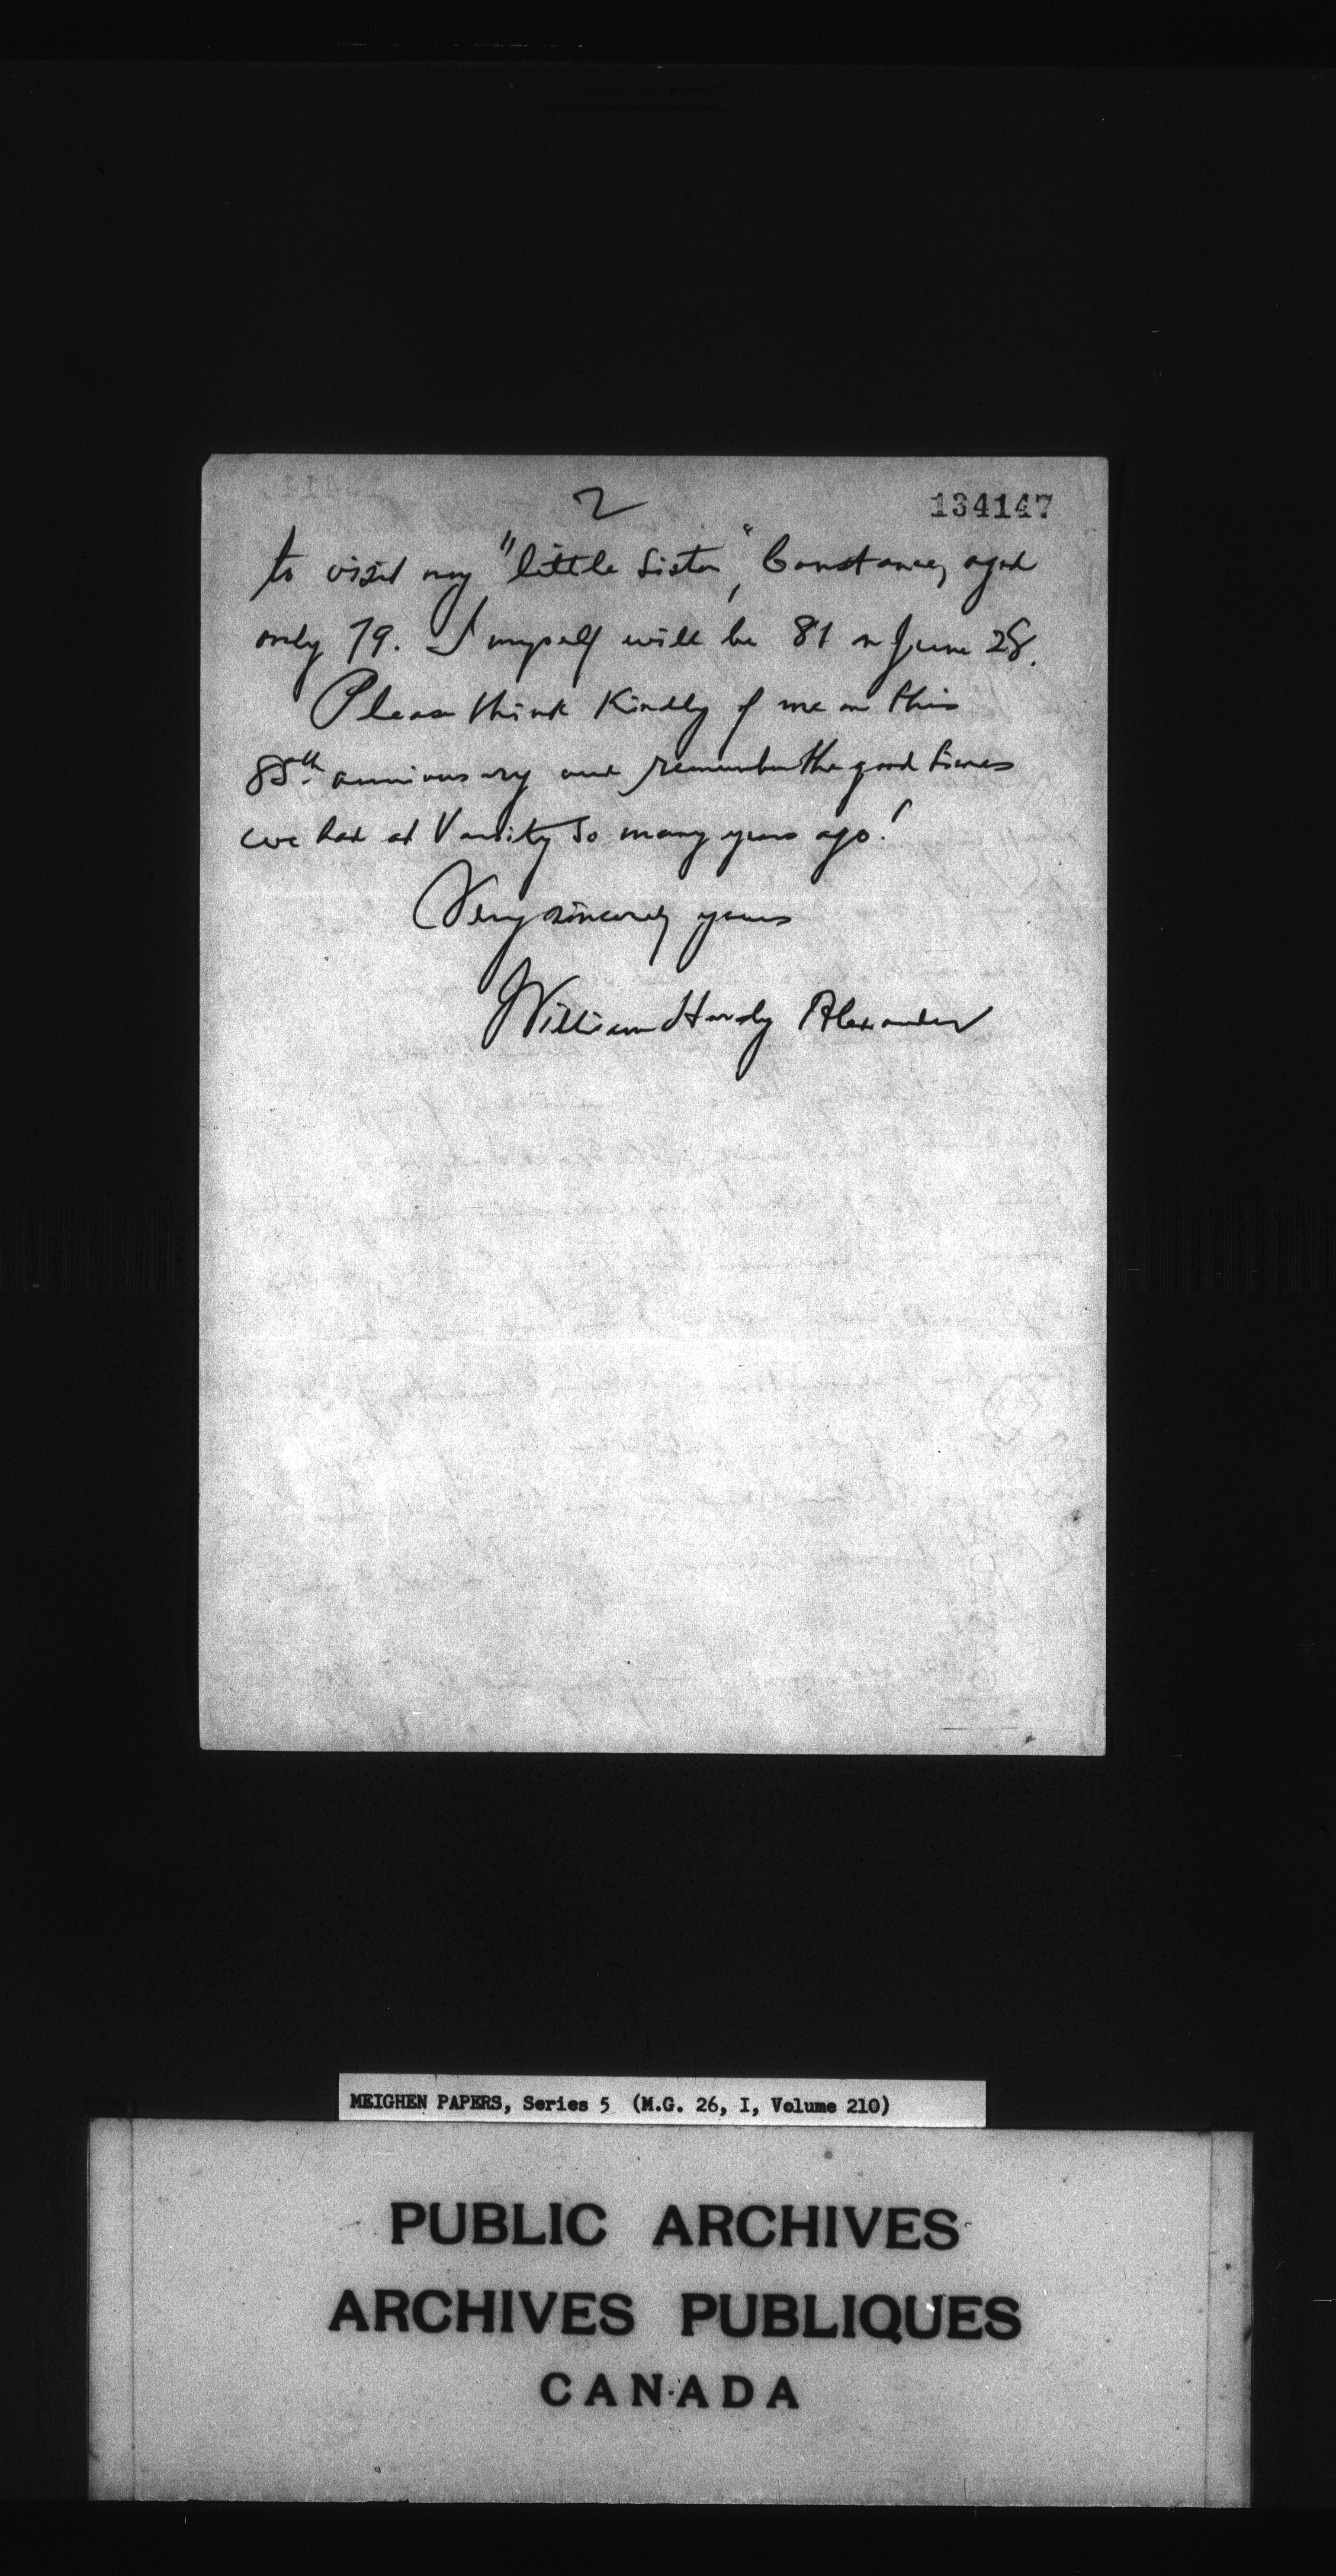 2
134147
to visit my "little sister", Constance, aged
only 79. I myself will be 81 on June 28.
Please think kindly of me on this
85th anniversary and remember the good times
we had at Varsity so many years ago!
Very sincerely yours
William Hardy Alexander
MEIGHEN PAPERS, Series 5 (M.G. 26, I, Volume 210)
PUBLIC ARCHIVES
ARCHIVES PUBLIQUES
CANADA